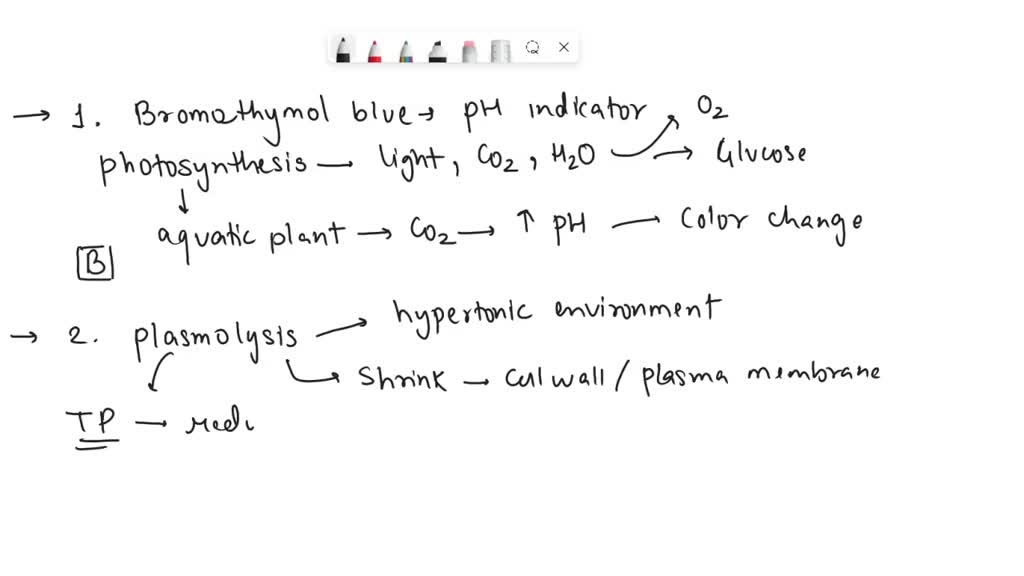 → 1. Bromothymol blue → pH indicator O2
photosynthesis — light, CO2, H2O → Glucose
aquatic plant → CO2 → ↑ pH — Color change
B
→ 2. plasmolysis → hypertonic environment
Shrink → cell wall / plasma membrane
TP →